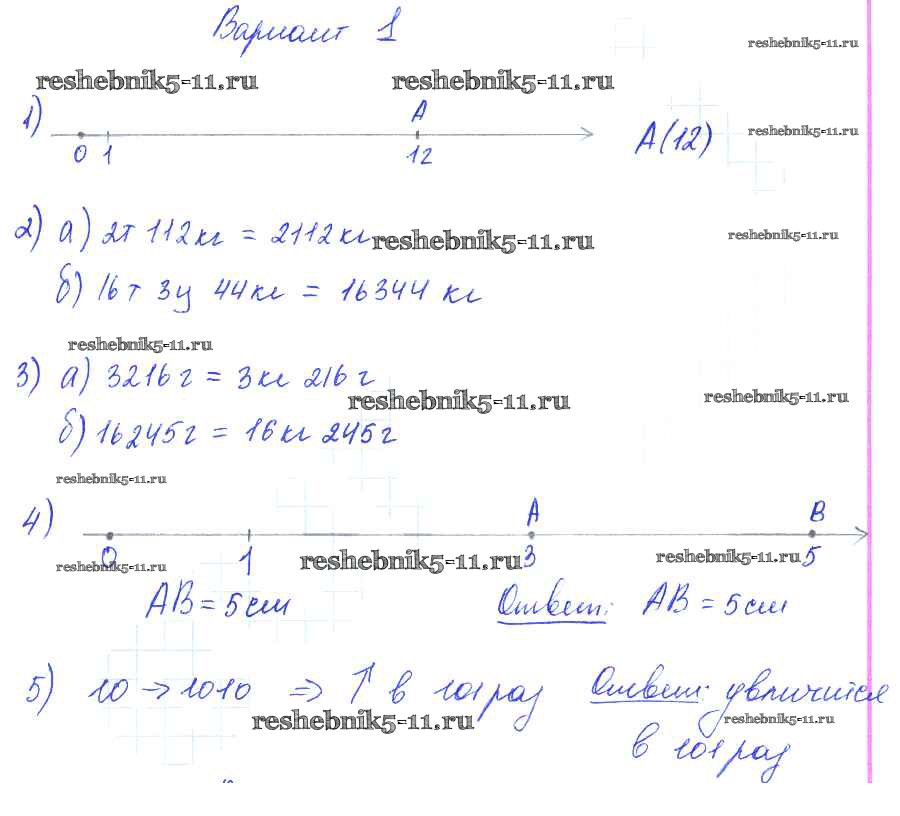 Вариант 1
reshebnik5-11.ru
reshebnik5-11.ru reshebnik5-11.ru
1) A
0 1 12 A(12)
reshebnik5-11.ru
2) а) 2т 112кг = 2112кг
reshebnik5-11.ru reshebnik5-11.ru
б) 16т 3ц 44кг = 16344 кг
reshebnik5-11.ru
3) а) 3216г = 3кг 216г
reshebnik5-11.ru reshebnik5-11.ru
б) 16245г = 16кг 245г
reshebnik5-11.ru
4) A B
0 1 3 5
reshebnik5-11.ru reshebnik5-11.ru reshebnik5-11.ru
AB = 5см Ответ: AB = 5см
5) 10 → 1010 ⇒ ↑ в 101 раз Ответ: увеличится
reshebnik5-11.ru reshebnik5-11.ru
в 101 раз